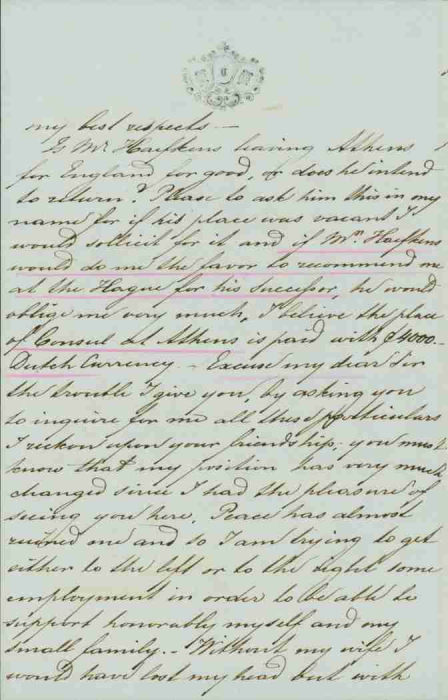 my best respects —
Is Mr. Hafkens leaving Athens
for England for good, or does he intend
to return? Please to ask him this in my
name for if his place was vacant I
would sollicit for it and if Mr. Hafkens
would do me the favor to recommend me
at the Hague for his successor, he would
oblige me very much, I believe the place
of Consul at Athens is paid with £4000.-
Dutch Currency. - Excuse my dear Sir
the trouble I give you, by asking you
to inquire for me all these particulars
I reckon upon your friendship; you must
know that my position has very much
changed since I had the pleasure of
seeing you here. Peace has almost
ruined me and so I am trying to get
either to the left or to the right some
employment in order to be able to
support honorably myself and my
small family. - Without my wife I
would have lost my head but with